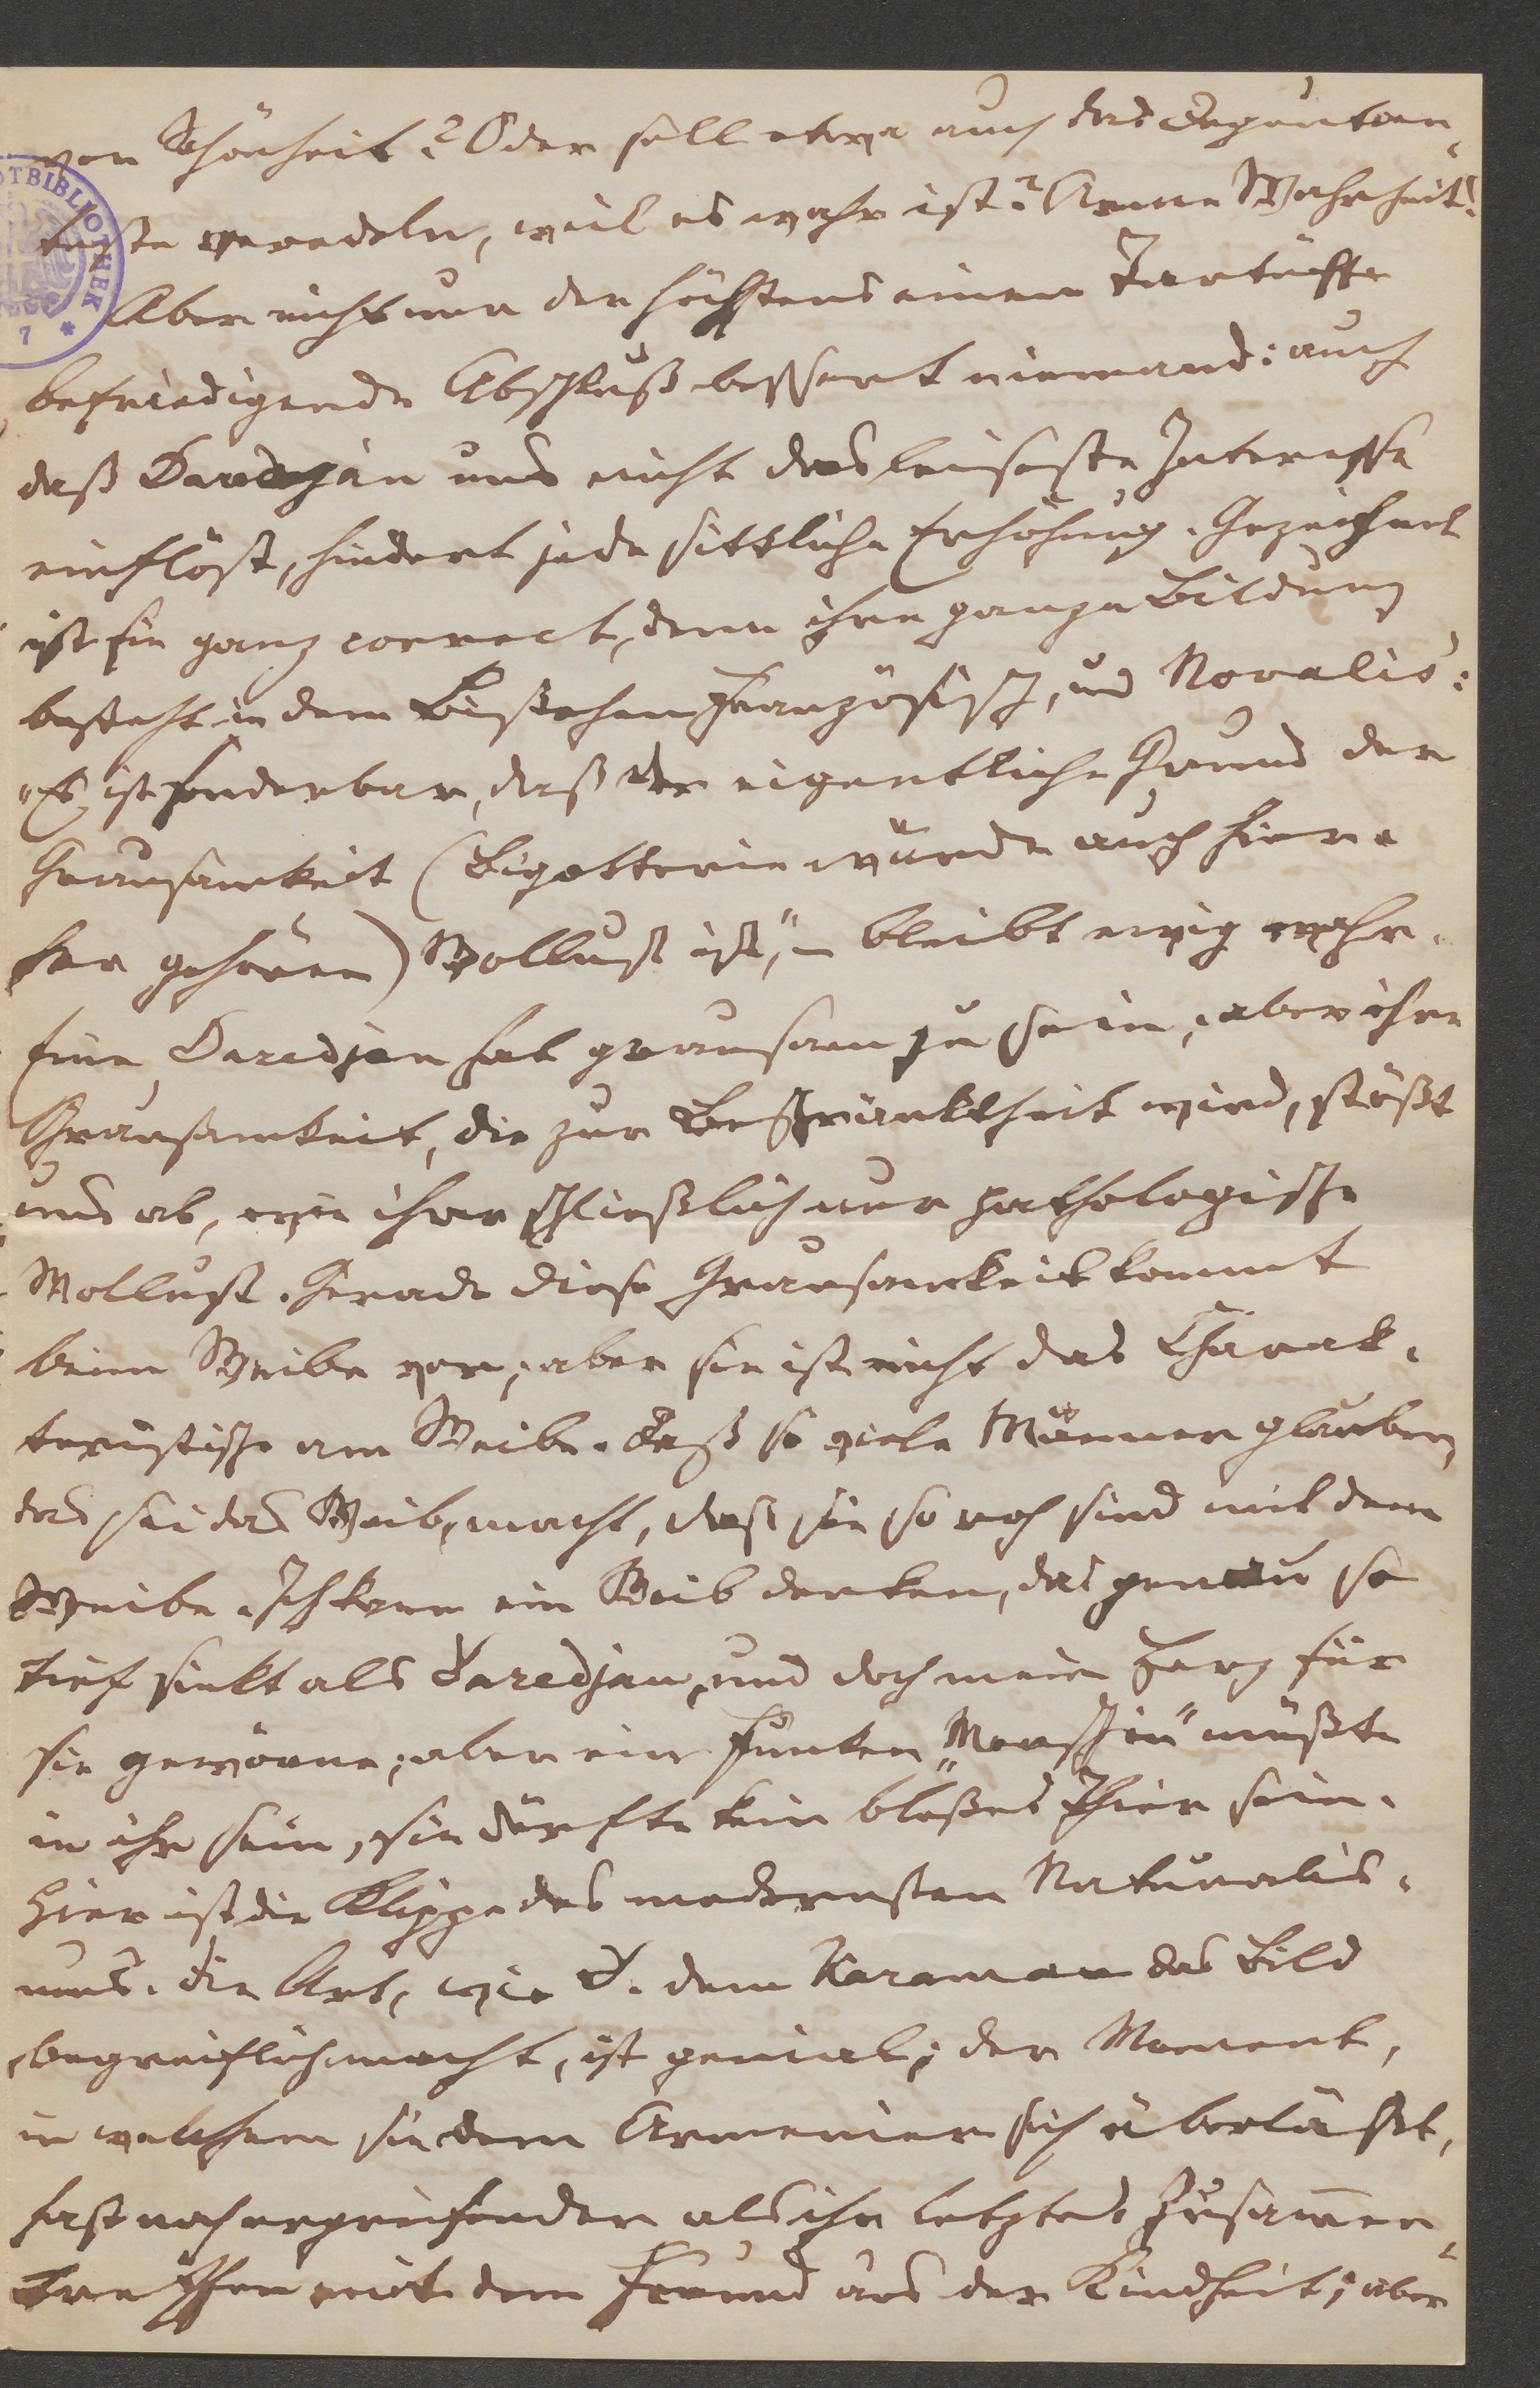 von Schönheit? Oder soll etwa auch das Degoutan-
teste veredeln, weil es wahr ist? Arme Wahrheit!
Aber nicht nur der höchstens einen Tartüffe
befriedigende Abschluß bessert niemand: auch
daß Daredjan uns nicht das leiseste Interesse
einflöst, hindert jede sittliche Erhöhung. Gezeichnet
ist sie ganz correct, denn ihre ganze Bildung
besteht in dem Bisschen Französisch, und Novalis':
„Es ist sonderbar, daß der eigentliche Grund der
Grausamkeit (Bigotterie würde auch hier-
her gehören) Wollust ist," – bleibt ewig wahr.
Eine Daredjan hat grausam zu sein; aber ihre
Grausamkeit, die zur Beschränktheit wird, stößt
uns ab, wie ihre schließlich nur pathologische
Wollust. Gerade diese Grausamkeit kommt
beim Weibe vor; aber sie ist nicht das Charak-
teristische am Weibe. Daß so viele Männer glauben,
das sei das Weib, macht, daß sie so roh sind mit dem
Weibe. Ich kann ein Weib denken, das genau so
tief sinkt als Daredjan, und doch mein Herz für
sie gewönne; aber ein Funken „Menschin" müßte
in ihr sein, sie dürfte kein bloßes Thier sein.
Hier ist die Klippe des modernsten Naturalis-
mus. Die Art, wie D. dem Karaman das Bild
begreiflich macht, ist genial; der Moment,
in welchem sie dem Armenier sich überläßt,
fast noch ergreifender als ihr letztes Zusammen-
treffen mit dem Freund aus der Kindheit; aber
OTBIBLIOTHEK
7 *